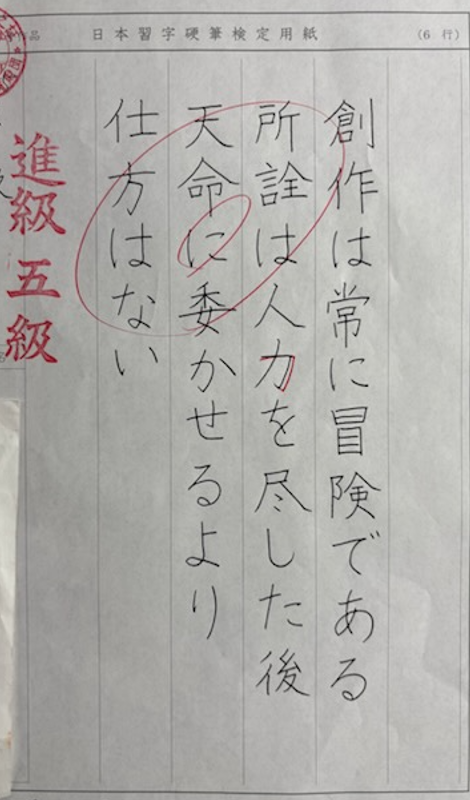 日本習字硬筆検定用紙
(6 行)
創作は常に冒険である
所詮は人力を尽した後
天命に委かせるより
仕方はない
進級五級
品